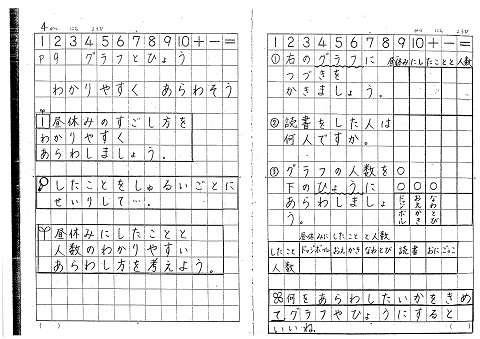 4 がつ にち ようび
1 2 3 4 5 6 7 8 9 10 + − =
p9 グラフとひょう
わかりやすく あらわそう
1 昼休みのすごし方を
わかりやすく
あらわしましょう。
したことをしゅるいごとに
せいりして…。
昼休みにしたことと
人数のわかりやすい
あらわし方を考えよう。
( )
がつ にち ようび
1 2 3 4 5 6 7 8 9 10 + − =
①右のグラフに
つづきを
かきましょう。
昼休みにしたことと人数
②読書をした人は
何人ですか。
③グラフの人数を
下のひょうに
あらわしましょ
う。
○
○○○
ドッジボール
おえかき
なわとび
昼休みにしたことと人数
したこと ドッジボール おえかき なわとび 読書 おにごっこ
人数
何をあらわしたいかをきめ
てグラフやひょうにすると
いいね。
( )